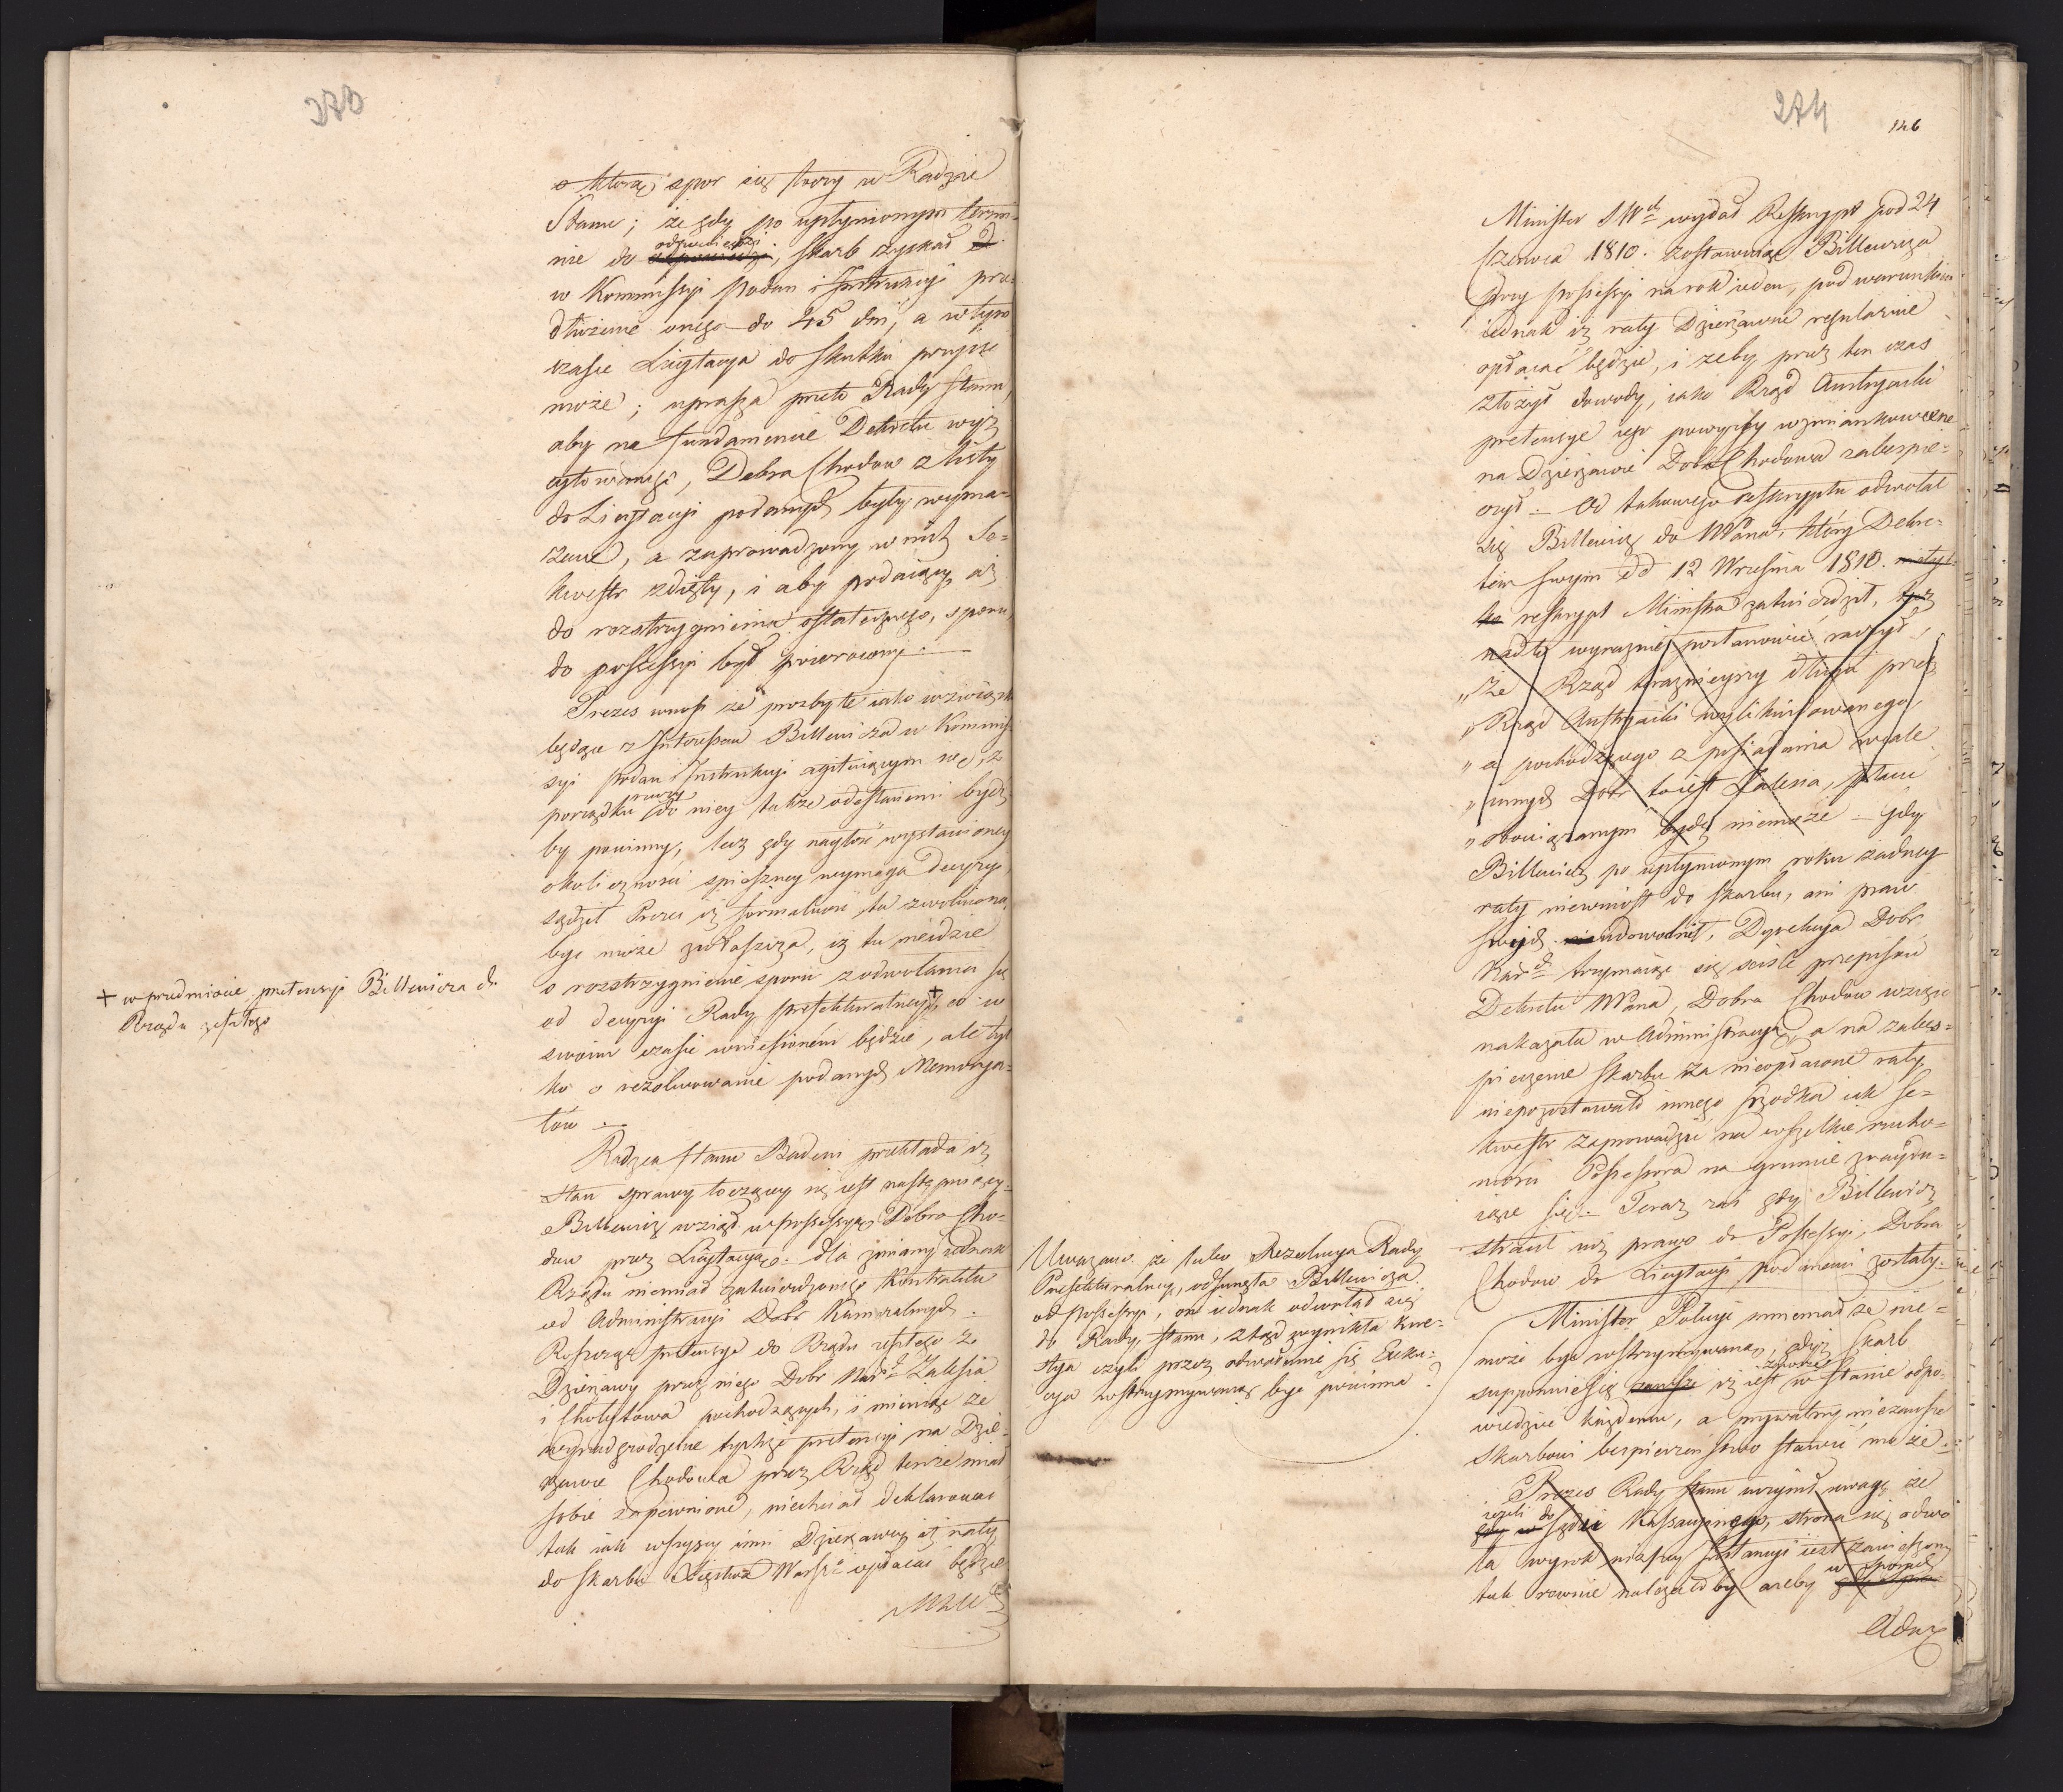 o którą spor się toczy w Radzie
Stanu; że gdy po upłynionym termi-
nie do odpowiedzi, skarb zyskał
w Kommissyi Podań i Instrukcyi prze-
dłużenie onego do 45 dni, a w tym
czasie Licytacya do skutku przyjść
może; uprasza przeto Rady Stanu,
aby na fundamencie Dekretu wyż
cytowanego, Dobra Chodow z listy
do Licytacyi podanych były wyma-
zane, a zaprowadzony w nich Se-
kwestr zdięty, i aby podaiący, aż
do rozstrzygnienia ostatecznego, sporu,
do possessyi był przywrocony.
Prezes wnosi że prozby te iako w związku
będące z Interessem Billewicza w Kommis-
syi Podań i Instrukcyi agituiącym się, z
porządku rzeczy do niey także odesłanemi bydź
by powinny, lecz gdy nagłość wystawioney
okoliczności spieszney wymaga decyzyi,
sądził Prezes iż formalność ta zwolnioną
być może zwłaszcza, iż tu nieidzie
o rozstrzygnienie sporu z odwołania się
od decyzyi Rady Prefekturalney + co w
swoim czasie wniesionem będzie, ale tyl-
ko o rezolwowanie podanych Memorya-
łów
+ w przedmiocie pretensyi Billewicza do
Rządu zeszłego
Radzca Stanu Badeni przekłada iż
stan sprawy toczący się iest następuiący.
Billewicz wziął w possessyą Dobra Cho-
dow przez Licytacyą. dla zmiany iednak
Rządu niemiał zatwierdzonego Kontraktu
od Administracyi Dobr Kameralnych.
Roszcząc pretensye do Rządu zeszłego z
Dzierżawy przez niego Dobr Nardch Zalesia
i Cholestowa pochodzących, i mieniąc że
wynadgrodzenie tychże pretensyi na Dzie-
rzawie Chodowa przez Rząd tenże miał
sobie zapewnione, niechciał deklarować
tak iak wszyscy inni Dzierżawcy iż raty
do skarbu Xięstwa Warszo opłacać będzie
274
146
Minister S Wch wydał Reskrypt pod 24
Czerwca 1810. zostawuiąc Billewicza
przy possessyi na rok ieden, pod warunkiem
iednak iż raty Dzierżawne regularnie
opłacać będzie, i żeby przez ten czas
złożył dowody, iako Rząd Austryacki
pretensye iego powyższe wzmiankowane
na Dzierżawie Dobr Chodowa zabespie-
czył. Od takowego reskryptu odwołał
się Billewicz do NPana, który Dekre-
tem swym dd 12 Wrzesnia 1810. nietyl-
ko reskrypt Ministra zatwierdził, lecz
nadto wyraznie postanowić raczył,
„że Rząd teraznieyszy długu przez
„Rząd Austryacki niezlikwidowanego,
„a pochodzącego z posiadania wcale
„innych Dobr to iest Zalesia, płacić
„obowiązanym bydź niemoże. Gdy
Billewicz po upłynionym roku żadney
raty niewniosł do skarbu, ani praw
swych nieudowodnił, Dyrekcya Dobr
Nardch trzymaiąc się scisle przepisów
Dekretu NPana, Dobra Chodow wziąść
nakazała w Administracyą, a na zabes-
pieczenie skarbu za nieopłacone raty,
niepozostawało innego środka iak se-
kwestr zaprowadzić na wszelkie rucho-
mości Possessora na gruncie znayduu-
iące się. Teraz zaś gdy Billewicz
stracił iuż prawo do Possessyi, Dobra
Chodow do Licytacyi podanemi zostały.
Uważano że lubo Rezolucya Rady
Prefekturalney, odsunęła Billewicza
od possessyi, on iednak odwołał się
do Rady Stanu, ztąd wynikła kwe-
stya czyli przez odwołanie się Exeku-
cya wstrzymywaną być powinna?
Minister Policyi mniemał że nie-
może być wstrzymywaną, gdyż Skarb
supponuiesię zawsze iż iest w stanie odpo-
wiedzieć każdemu, a prywatny niezawsze
skarbowi bespieczeństwo stawić może.
Prezes Rady Stanu uczynił uwagę że
ieżeli do Sądu Kassacyinego, strona się odwo-
ła wyrok niższey Instancyi iest zawieszony
tak rownie należałoby ażeby w